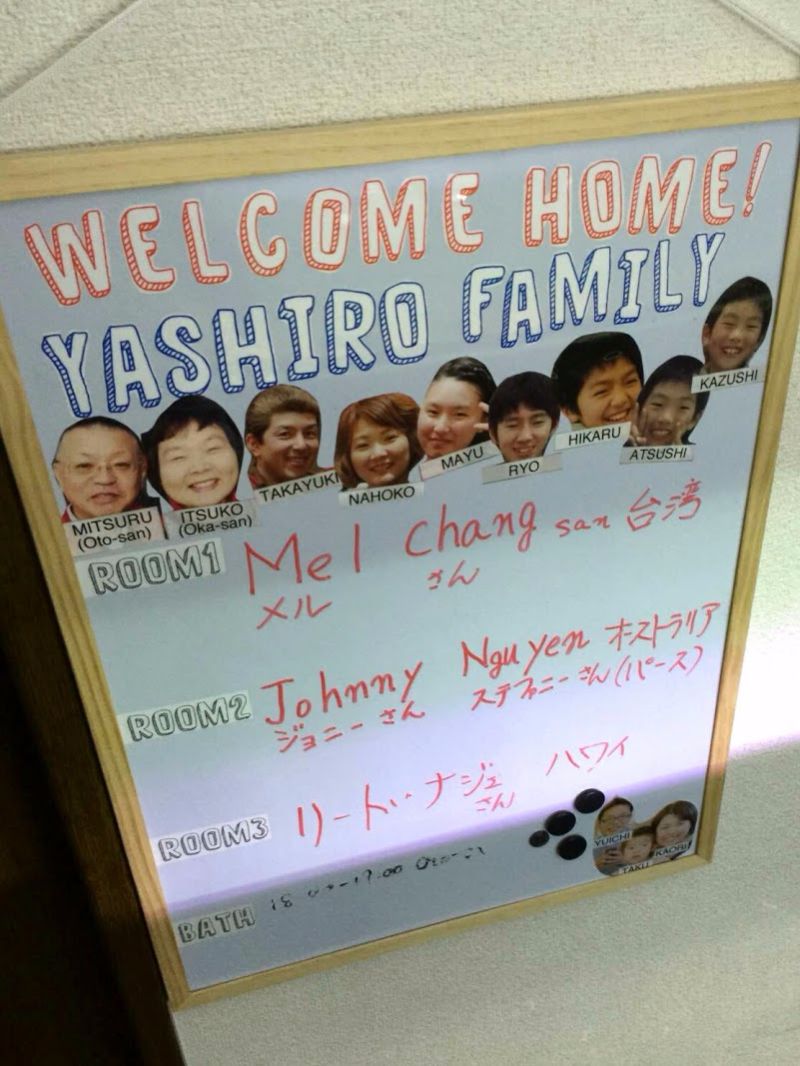 WELCOME HOME!
YASHIRO FAMILY
KAZUSHI
ATSUSHI
HIKARU
RYO
MAYU
NAHOKO
TAKAYUKI
ITSUKO
(Oka-san)
MITSURU
(Oto-san)
ROOM1 Mel Chang san 台湾
メル さん
ROOM2 Johnny Nguyen オーストラリア
ジョニーさん ステファニーさん(パース)
ROOM3 リード・ナジェ ハワイ
さん
YUICHI
TAKU
KAORI
BATH